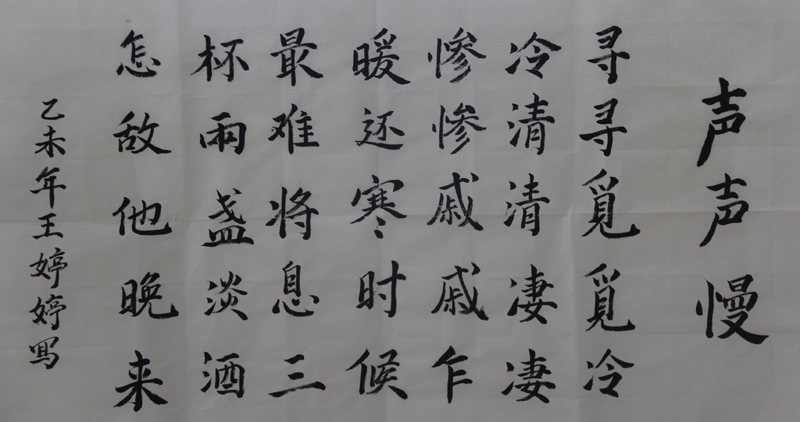 声声慢
寻寻觅觅冷
冷清清凄凄
惨惨戚戚乍
暖还寒时候
最难将息三
杯兩盏淡酒
怎敌他晚来
乙未年王婷婷写